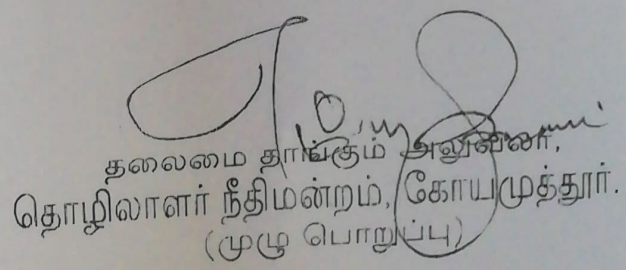 தலைமை தாங்கும் அலுவலர்,
தொழிலாளர் நீதிமன்றம், கோயமுத்தூர்.
(முழு பொறுப்பு)